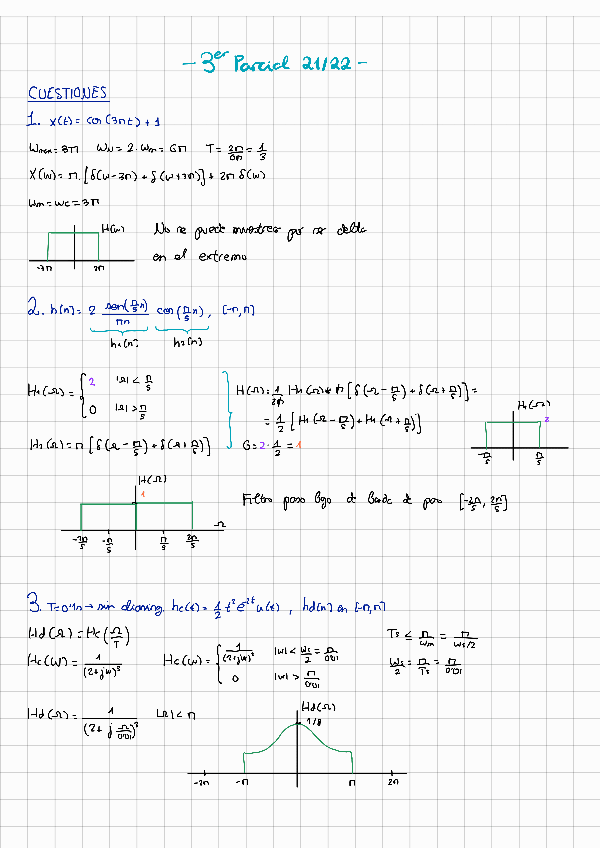 - 3er Parcial 21/22 -
CUESTIONES
1. x(t) = cos(3πt) + 1
Wmax = 3π WN = 2·Wm = 6π T = 2π/6π = 1/3
X(w) = π·[δ(w-3π) + δ(w+3π)] + 2π δ(w)
Wm = Wc = 3π
H(w) No se puede muestrear por ser delta
-3π 3π en el extremo
2. h[n] = 2 sen(π/5 n)/πn cos(π/5 n), [-π,π]
h1[n] h2[n]
H1(Ω) = { 2 |Ω| < π/5
0 |Ω| > π/5
H(Ω) = 1/2π H1(Ω) * π [δ(Ω - π/5) + δ(Ω + π/5)] =
= 1/2 [H1(Ω - π/5) + H1(Ω + π/5)]
H1(Ω)
2
-π/5 π/5
H2(Ω) = π [δ(Ω - π/5) + δ(Ω + π/5)] G = 2·1/2 = 1
H(Ω)
1
Ω
-2π/5 -π/5 π/5 2π/5
Filtro paso bajo de banda de paso [-2π/5, 2π/5]
3. T = 0'01 → sin aliasing. hc(t) = 1/2 t² e^-2t u(t), hd[n] en [-π,π]
Hd(Ω) = Hc(Ω/T) Ts ≤ π/Wm = π/Ws/2
Hc(w) = 1/(2+jw)³ Hc(w) = { 1/(2+jw)³ |w| < Ws/2 = π/0'01 Ws/2 = π/Ts = π/0'01
0 |w| > π/0'01
Hd(Ω) = 1/(2 + j Ω/0'01)³ |Ω| < π
Hd(Ω)
1/8
-2π -π π 2π